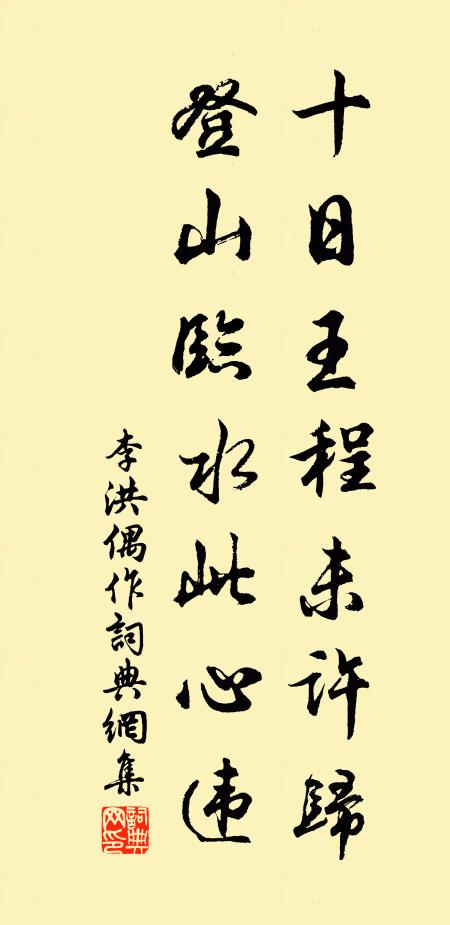 十日王程未许歸
登山臨水此心违
李洪偶作詞典網集
詞典網印